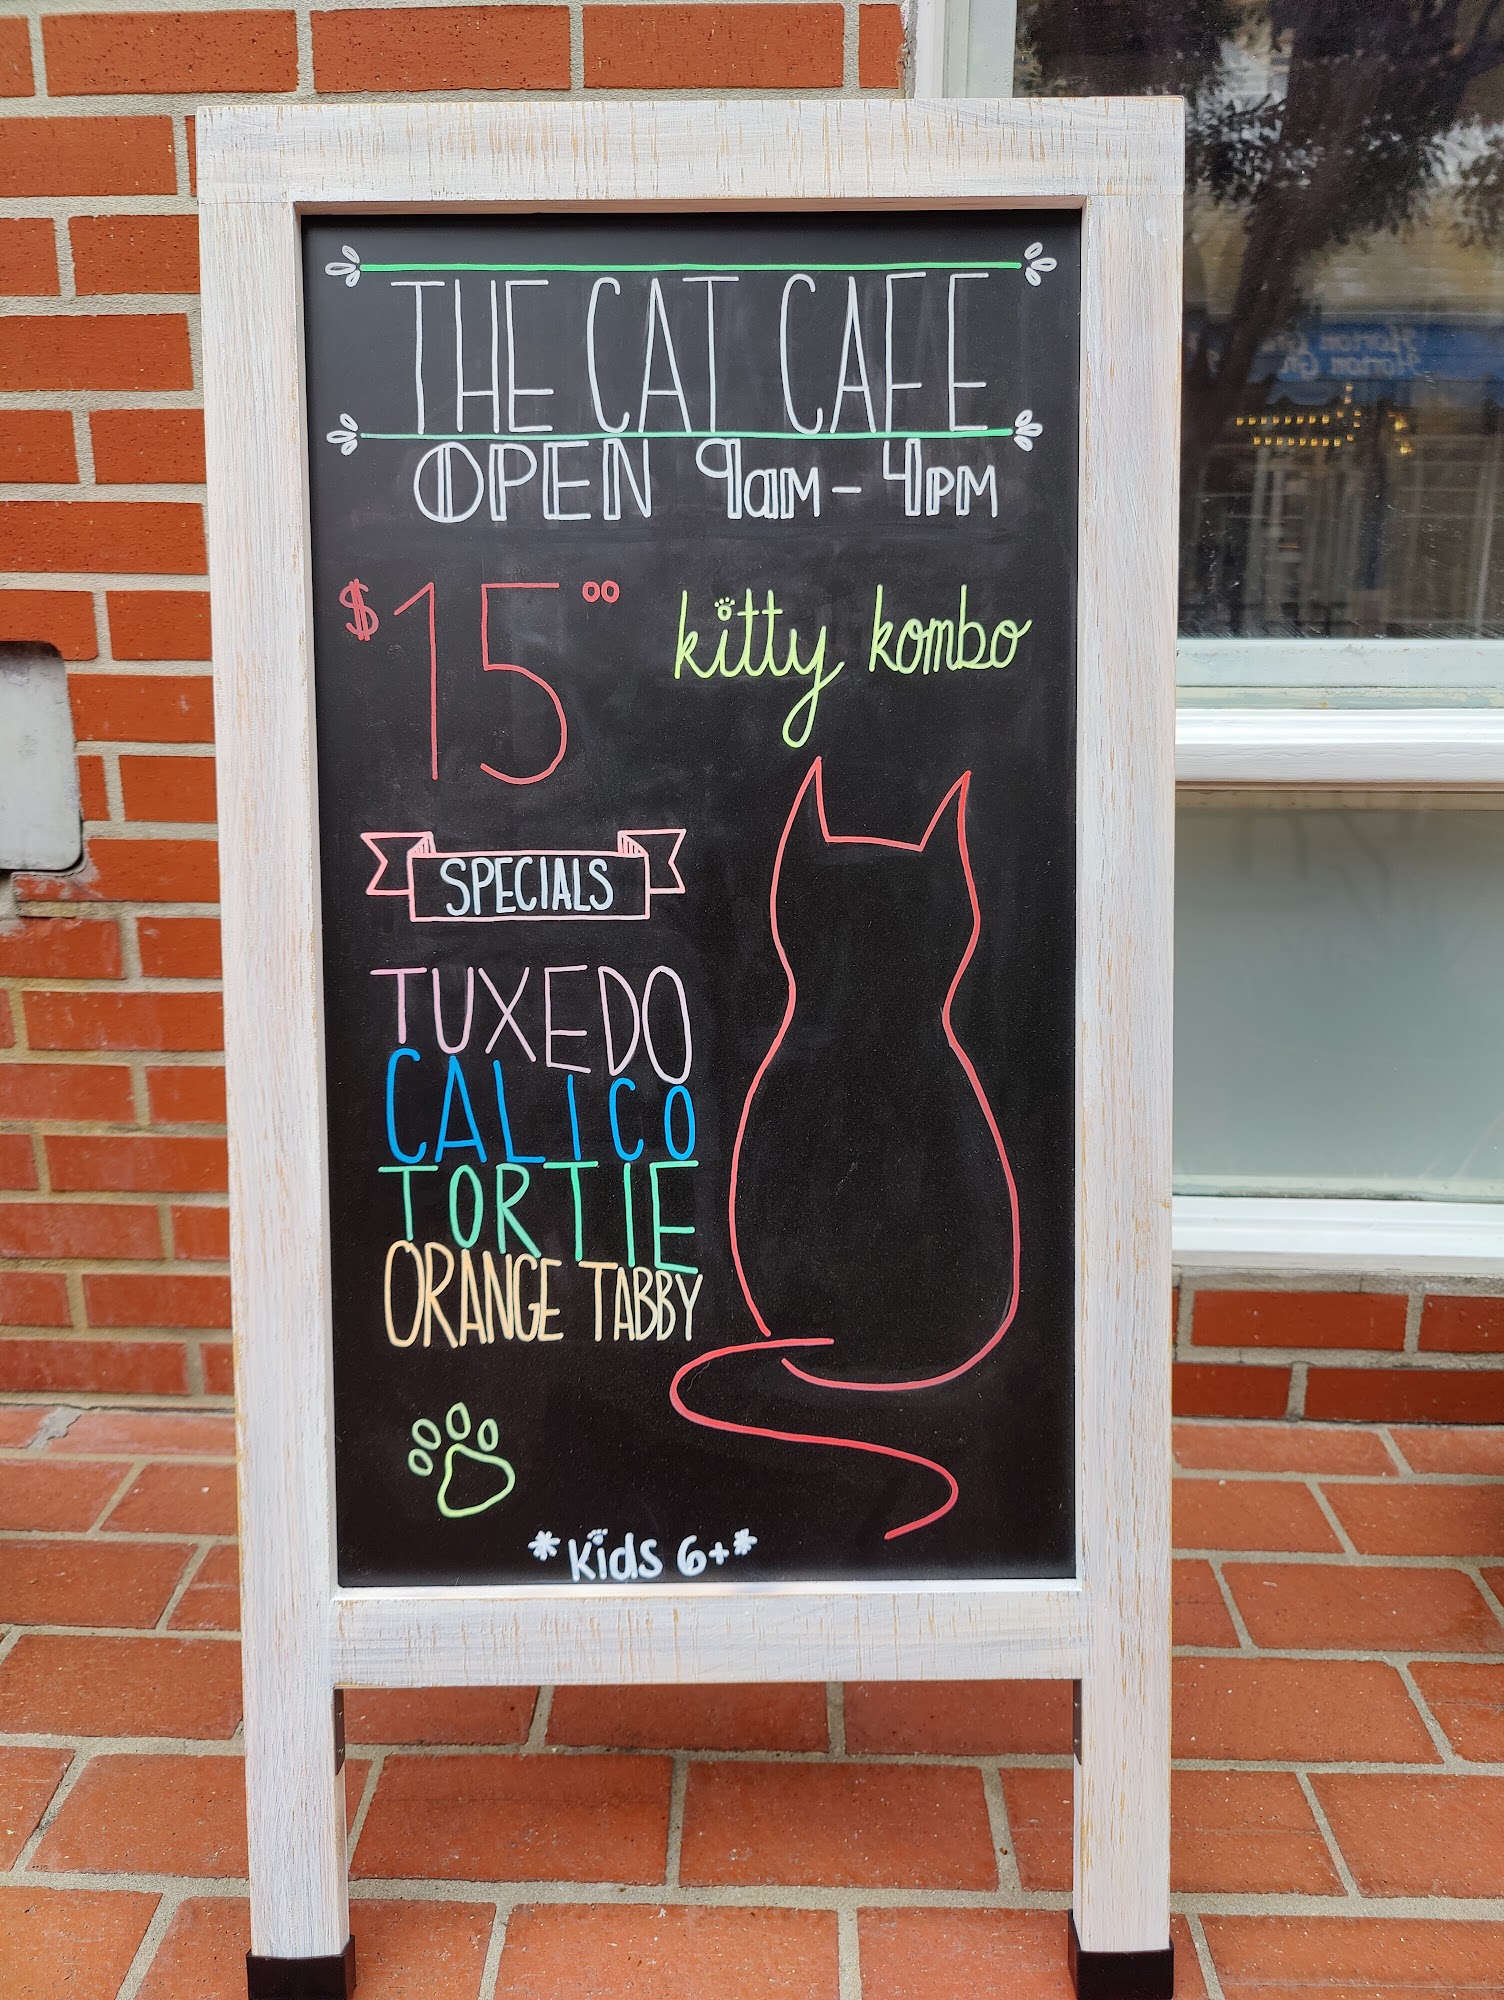 THE CAT CAFE
OPEN 9am - 4PM
$15⁰⁰ kitty kombo
SPECIALS
TUXEDO
CALICO
TORTIE
ORANGE TABBY
*Kids 6+*